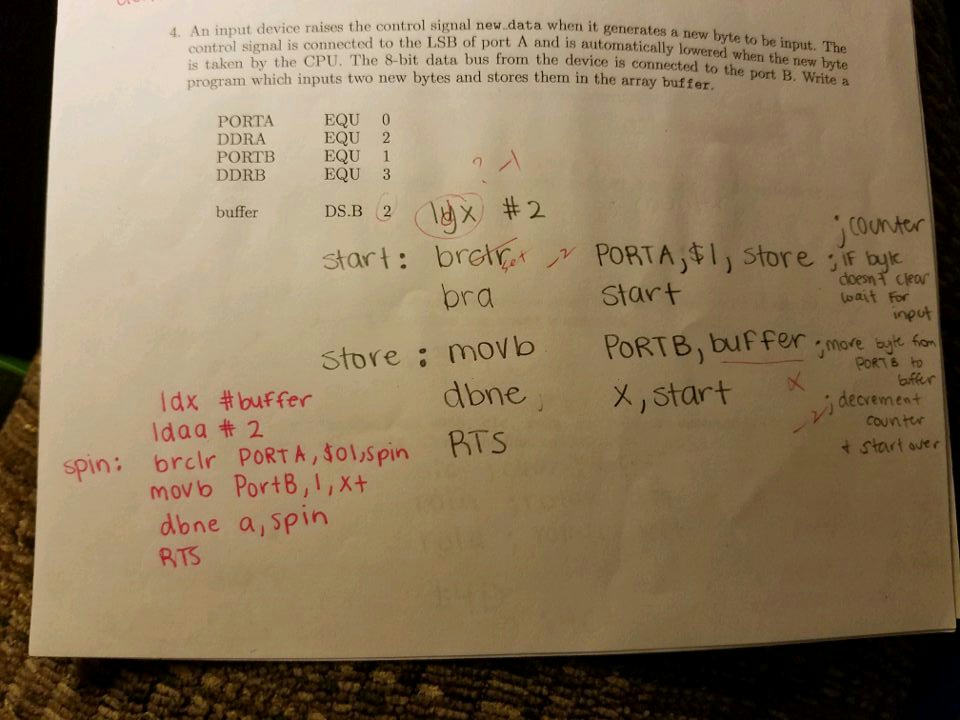 4. An input device raises the control signal new_data when it generates a new byte to be input. The
control signal is connected to the LSB of port A and is automatically lowered when the new byte
is taken by the CPU. The 8-bit data bus from the device is connected to the port B. Write a
program which inputs two new bytes and stores them in the array buffer.
PORTA EQU 0
DDRA EQU 2
PORTB EQU 1
DDRB EQU 3
? -1
buffer DS.B 2 #2
;counter
start: set -2 PORTA,$1, store ;if byte
doesn't clear
bra start wait for
input
store: movb PORTB, buffer ;move byte from
PORTB to
buffer
dbne, x, start x ;decrement
-2 counter
RTS + start over
ldx #buffer
ldaa #2
spin: brclr PORTA,$01,spin
movb PortB,1,x+
dbne a,spin
RTS